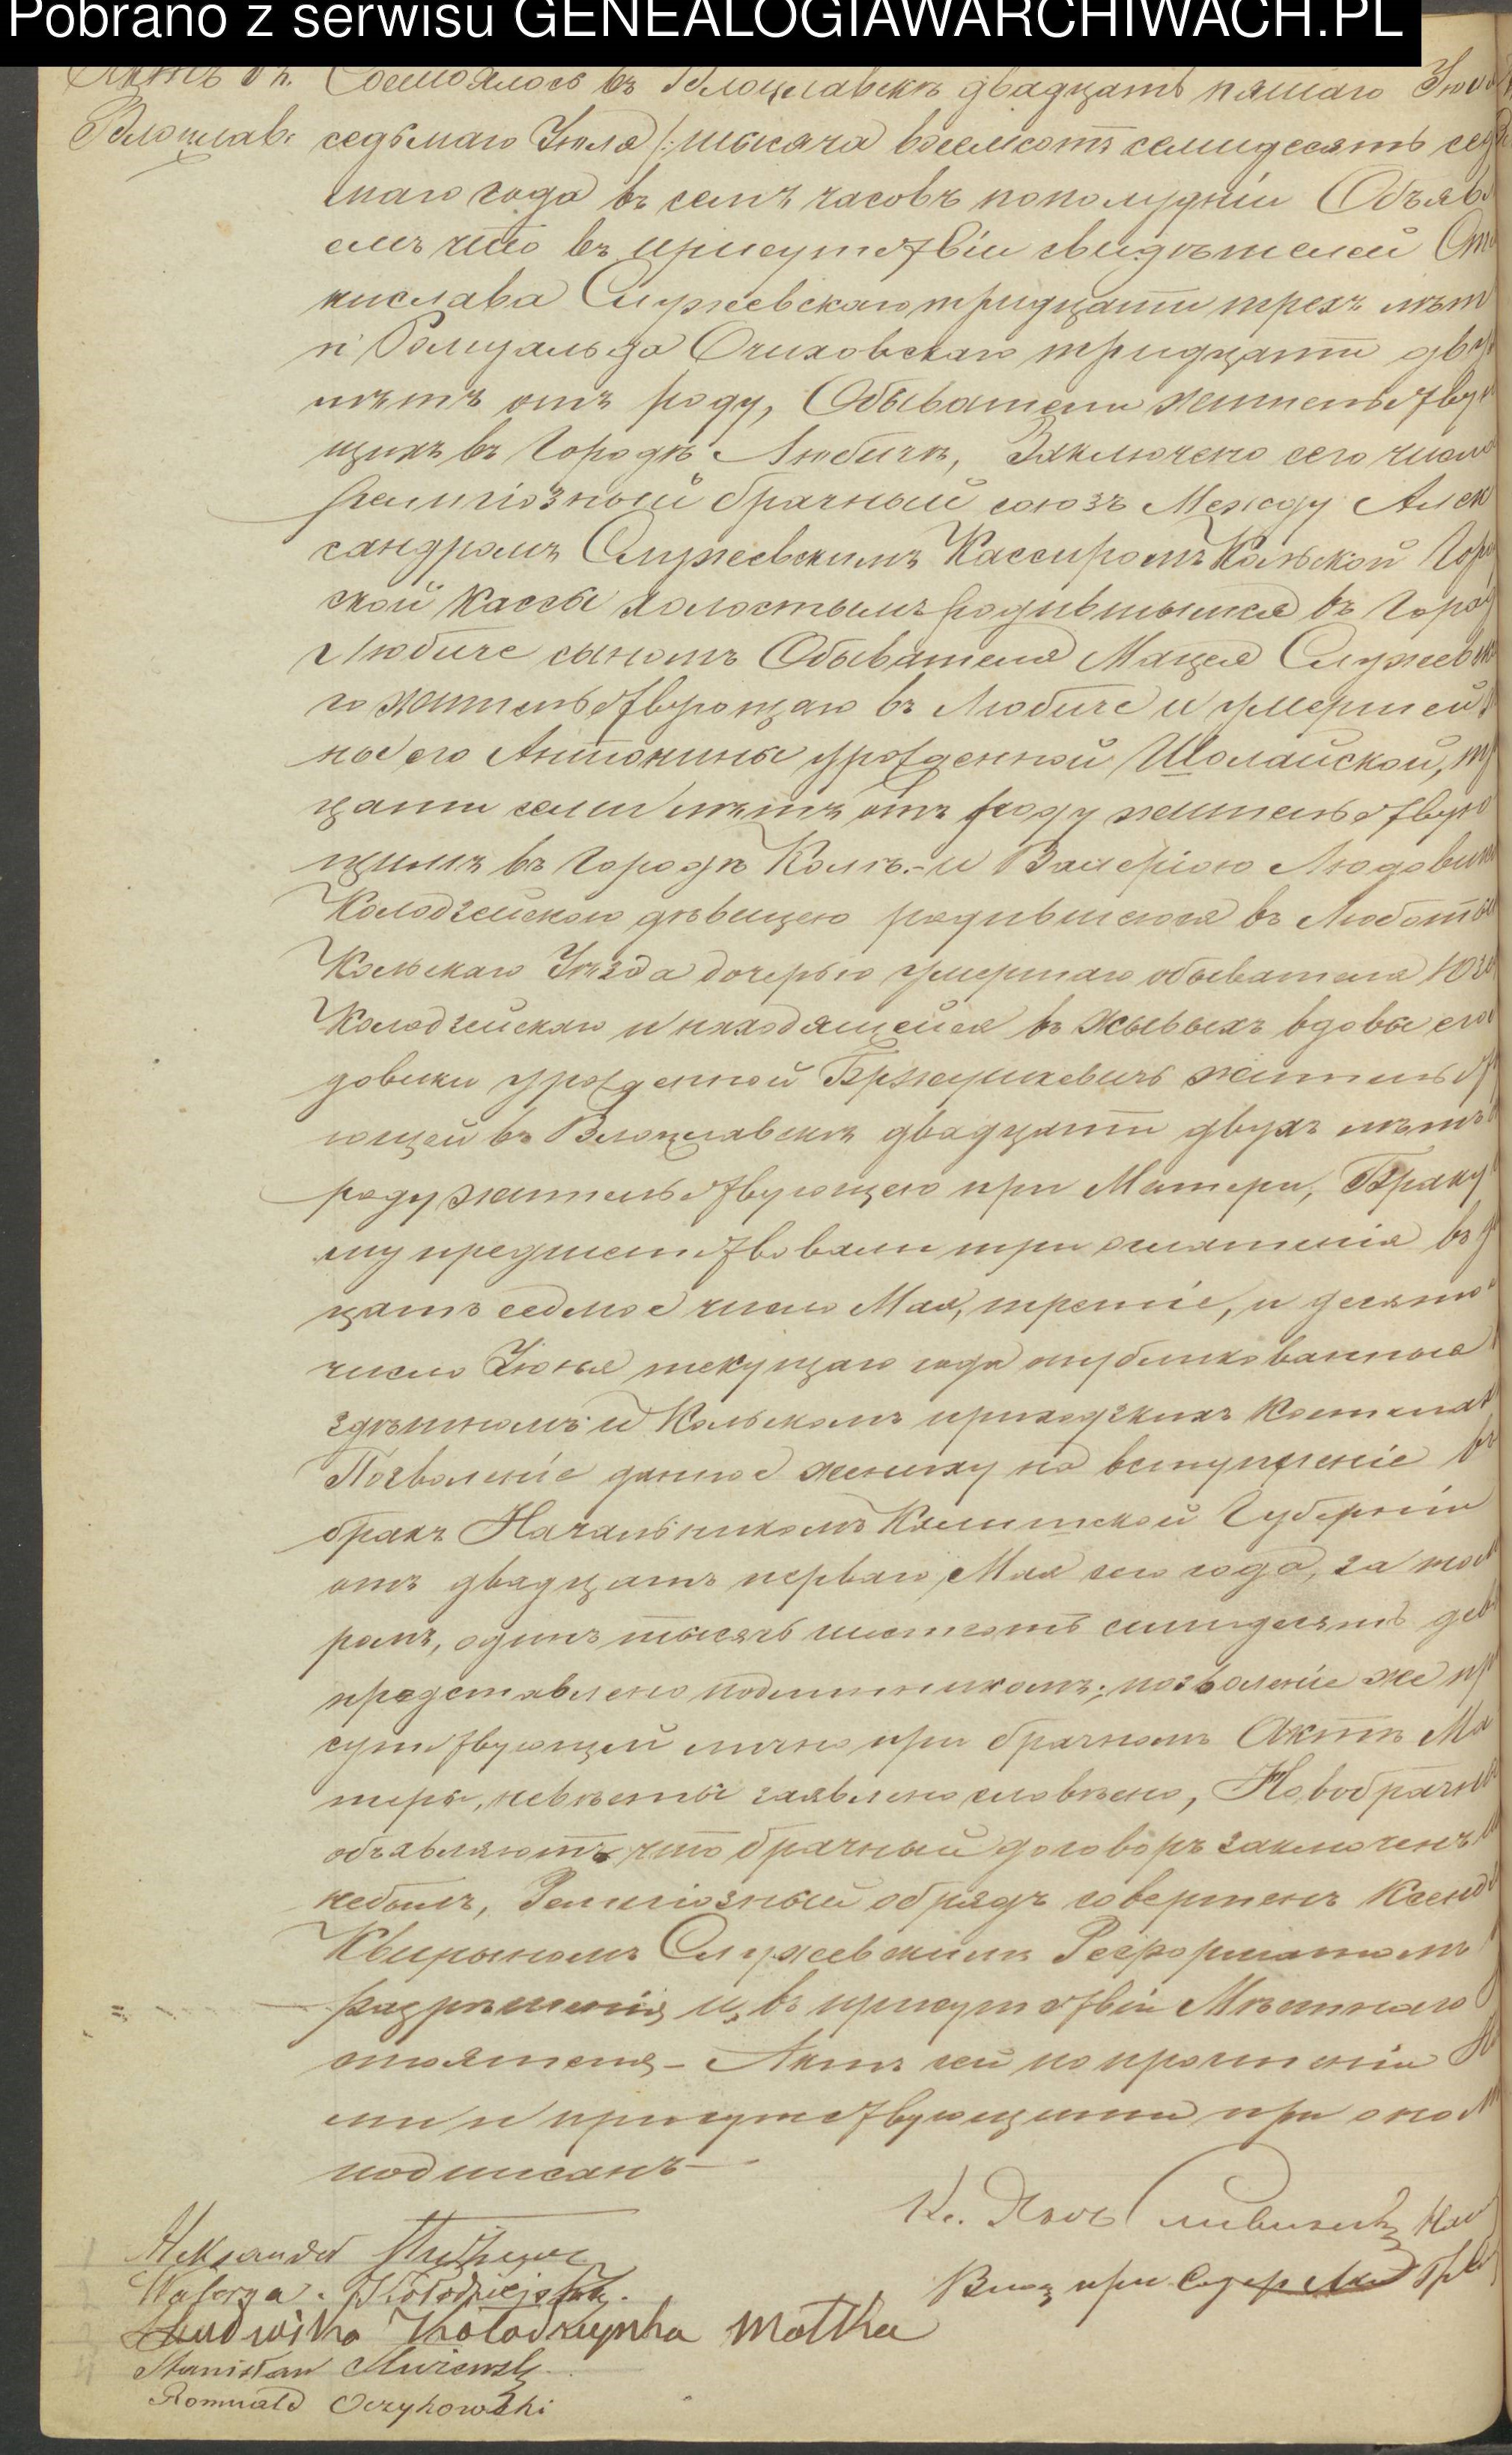 Pobrano z serwisu GENEALOGIAWARCHIWACH.PL
Состоялось въ Влоцлавскѣ двадцать пятаго
Влоцлав. седьмаго Іюля /: тысяча восемьсотъ семидесятъ
маго года въ семь часовъ пополудніи Объяв
емъ что въ присутствіи свидѣтелей Ста
нислава Служевскаго тридцати трехъ лѣтъ
и Ромуальда Очиховскаго тридцати двух
лѣтъ отъ роду, Обыватели жительству
щихъ въ Городѣ Любичѣ, Заключено сего числа
религіозный брачный союзъ Между Алек
сандромъ Служевскимъ Кассиромъ Кольской Горо
ской Кассы холостымъ родившымся въ Город
Любиче сыномъ Обывателя Мацея Служевска
го жительствующаго въ Любиче и умершей
ны его Антонины урожденной Шолайской, тр
цати семи лѣтъ отъ роду жительствую
щимъ въ Городѣ Колѣ.- и Валеріою Людовик
Колодзейскою дѣвицею родившеюся въ
Кольскаго Уѣзда дочерью умершаго обывателя Юз
Колодзейскаго и находящейся въ живыхъ вдовы его
довики урожденной жительст
ющей въ Влоцлавскѣ двадцати двухъ лѣтъ
роду жительствующею при Матери, Браку
му предшествовали три оглашенія въ д
цать седмое число Мая, третіе, и десято
число Іюня текущаго года опубликованные
здѣшномъ и Кольскомъ приходзкихъ костелах
Позволеніе данное жениху на вступленіе въ
бракъ Начальникомъ Калишской Губерніи
отъ двадцать перваго Мая сего года, за но
ромъ, одинъ тысячъ шестьсотъ семидесять дев
представлено подлинникомъ; позволеніе же пр
сутствующей лично при брачномъ Актѣ Ма
тери, невѣсты заявлено словесно, Новобрачны
объявляютъ что брачный договоръ заключенъ
небылъ, Религіозный обрядъ совершенъ Ксенд
Квирыномъ Служевскимъ Реформатомъ
разрѣшенія и въ присутствіи Мѣстнаго
стоятеля - Актъ сей по прочтеніи
ми и присутствующими при оном
подписанъ -
Aleksander Służewski
Walerya Kołodziejska.
Ludwika Kołodziejska Matka
Stanisław Służewski
Romuald Oczykowski